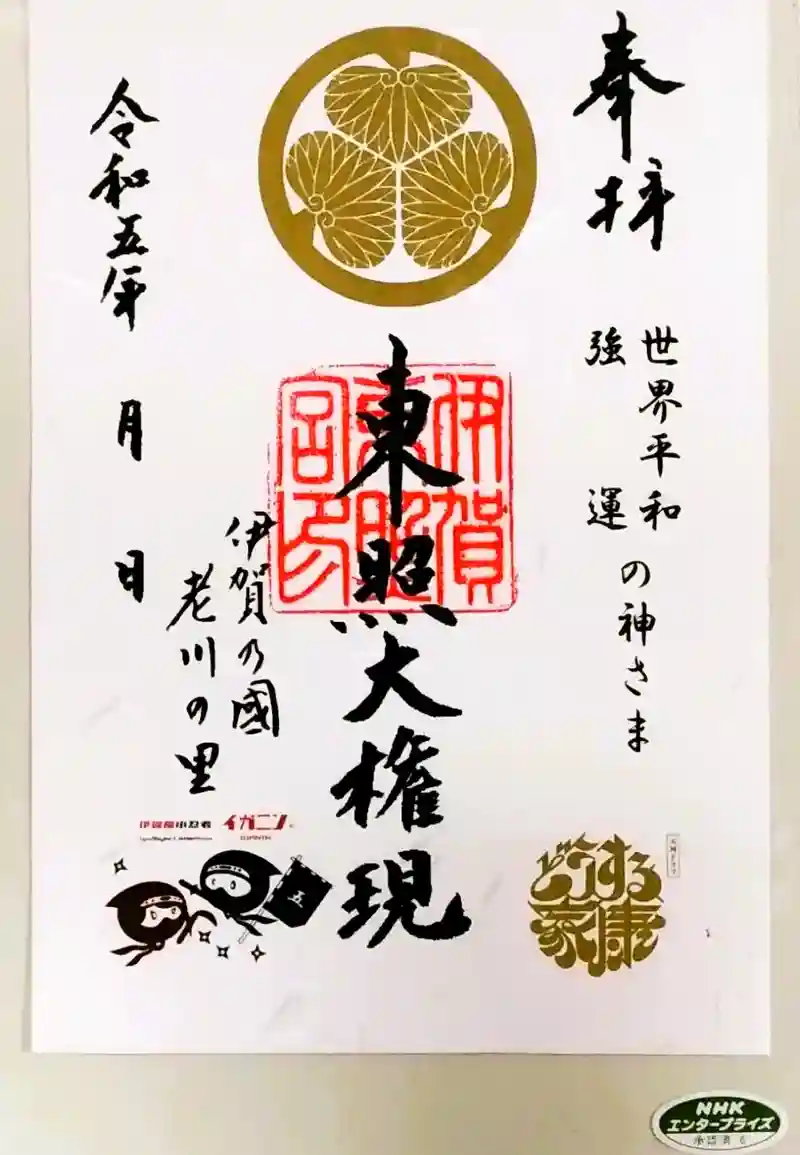 奉拝
世界平和
強運
の神さま
東照大権現
伊賀東照宮印
伊賀乃國
老川の里
令和五年 月 日
伊賀風小忍者 イガニン
五
大河ドラマ
どうする家康
NHK
エンタープライズ